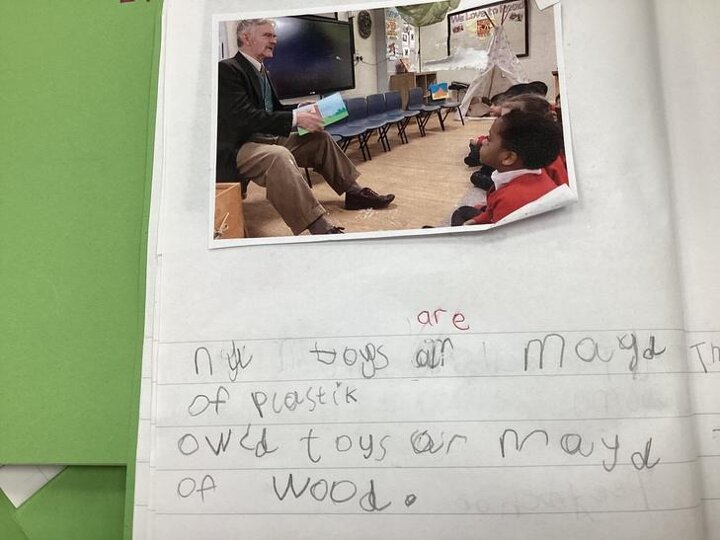 We Love to Read
are
nyi toys air mayd
of plastik
owld toys air mayd
of wood.
Th